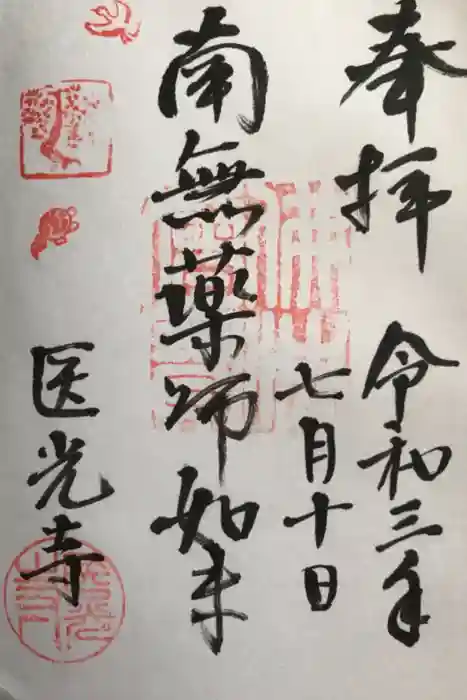 奉拝
令和三年
七月十日
南無薬師如来
医光寺